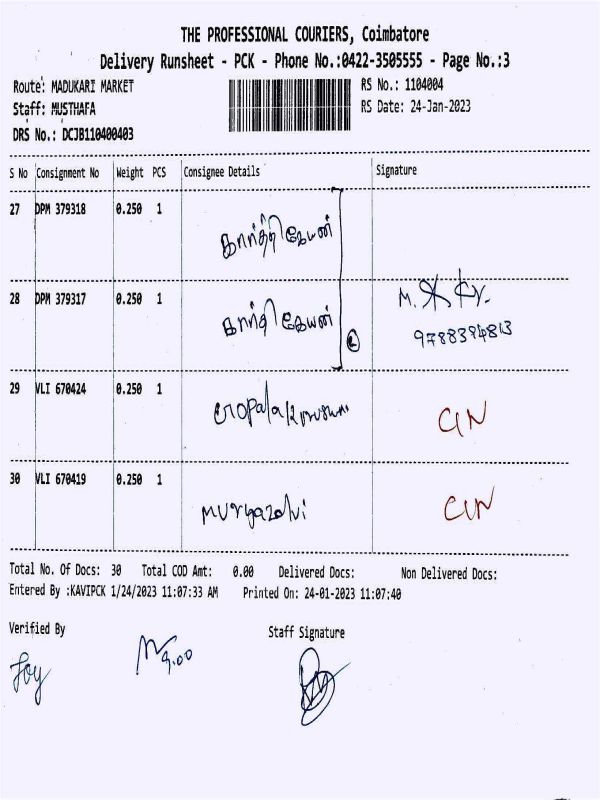 THE PROFESSIONAL COURIERS, Coimbatore
Delivery Runsheet - PCK - Phone No.:0422-3505555 - Page No.:3
Route: MADUKARI MARKET RS No.: 1104004
Staff: MUSTHAFA RS Date: 24-Jan-2023
DRS No.: DCJB110400403
S No Consignment No Weight PCS Consignee Details Signature
27 DPM 379318 0.250 1 கார்த்திகேயன்
28 DPM 379317 0.250 1 கார்த்திகேயன் 2 M.
9788394813
29 VLI 670424 0.250 1 CIN
30 VLI 670419 0.250 1 CIN
Total No. Of Docs: 30 Total COD Amt: 0.00 Delivered Docs: Non Delivered Docs:
Entered By :KAVIPCK 1/24/2023 11:07:33 AM Printed On: 24-01-2023 11:07:40
Verified By Staff Signature
Joy